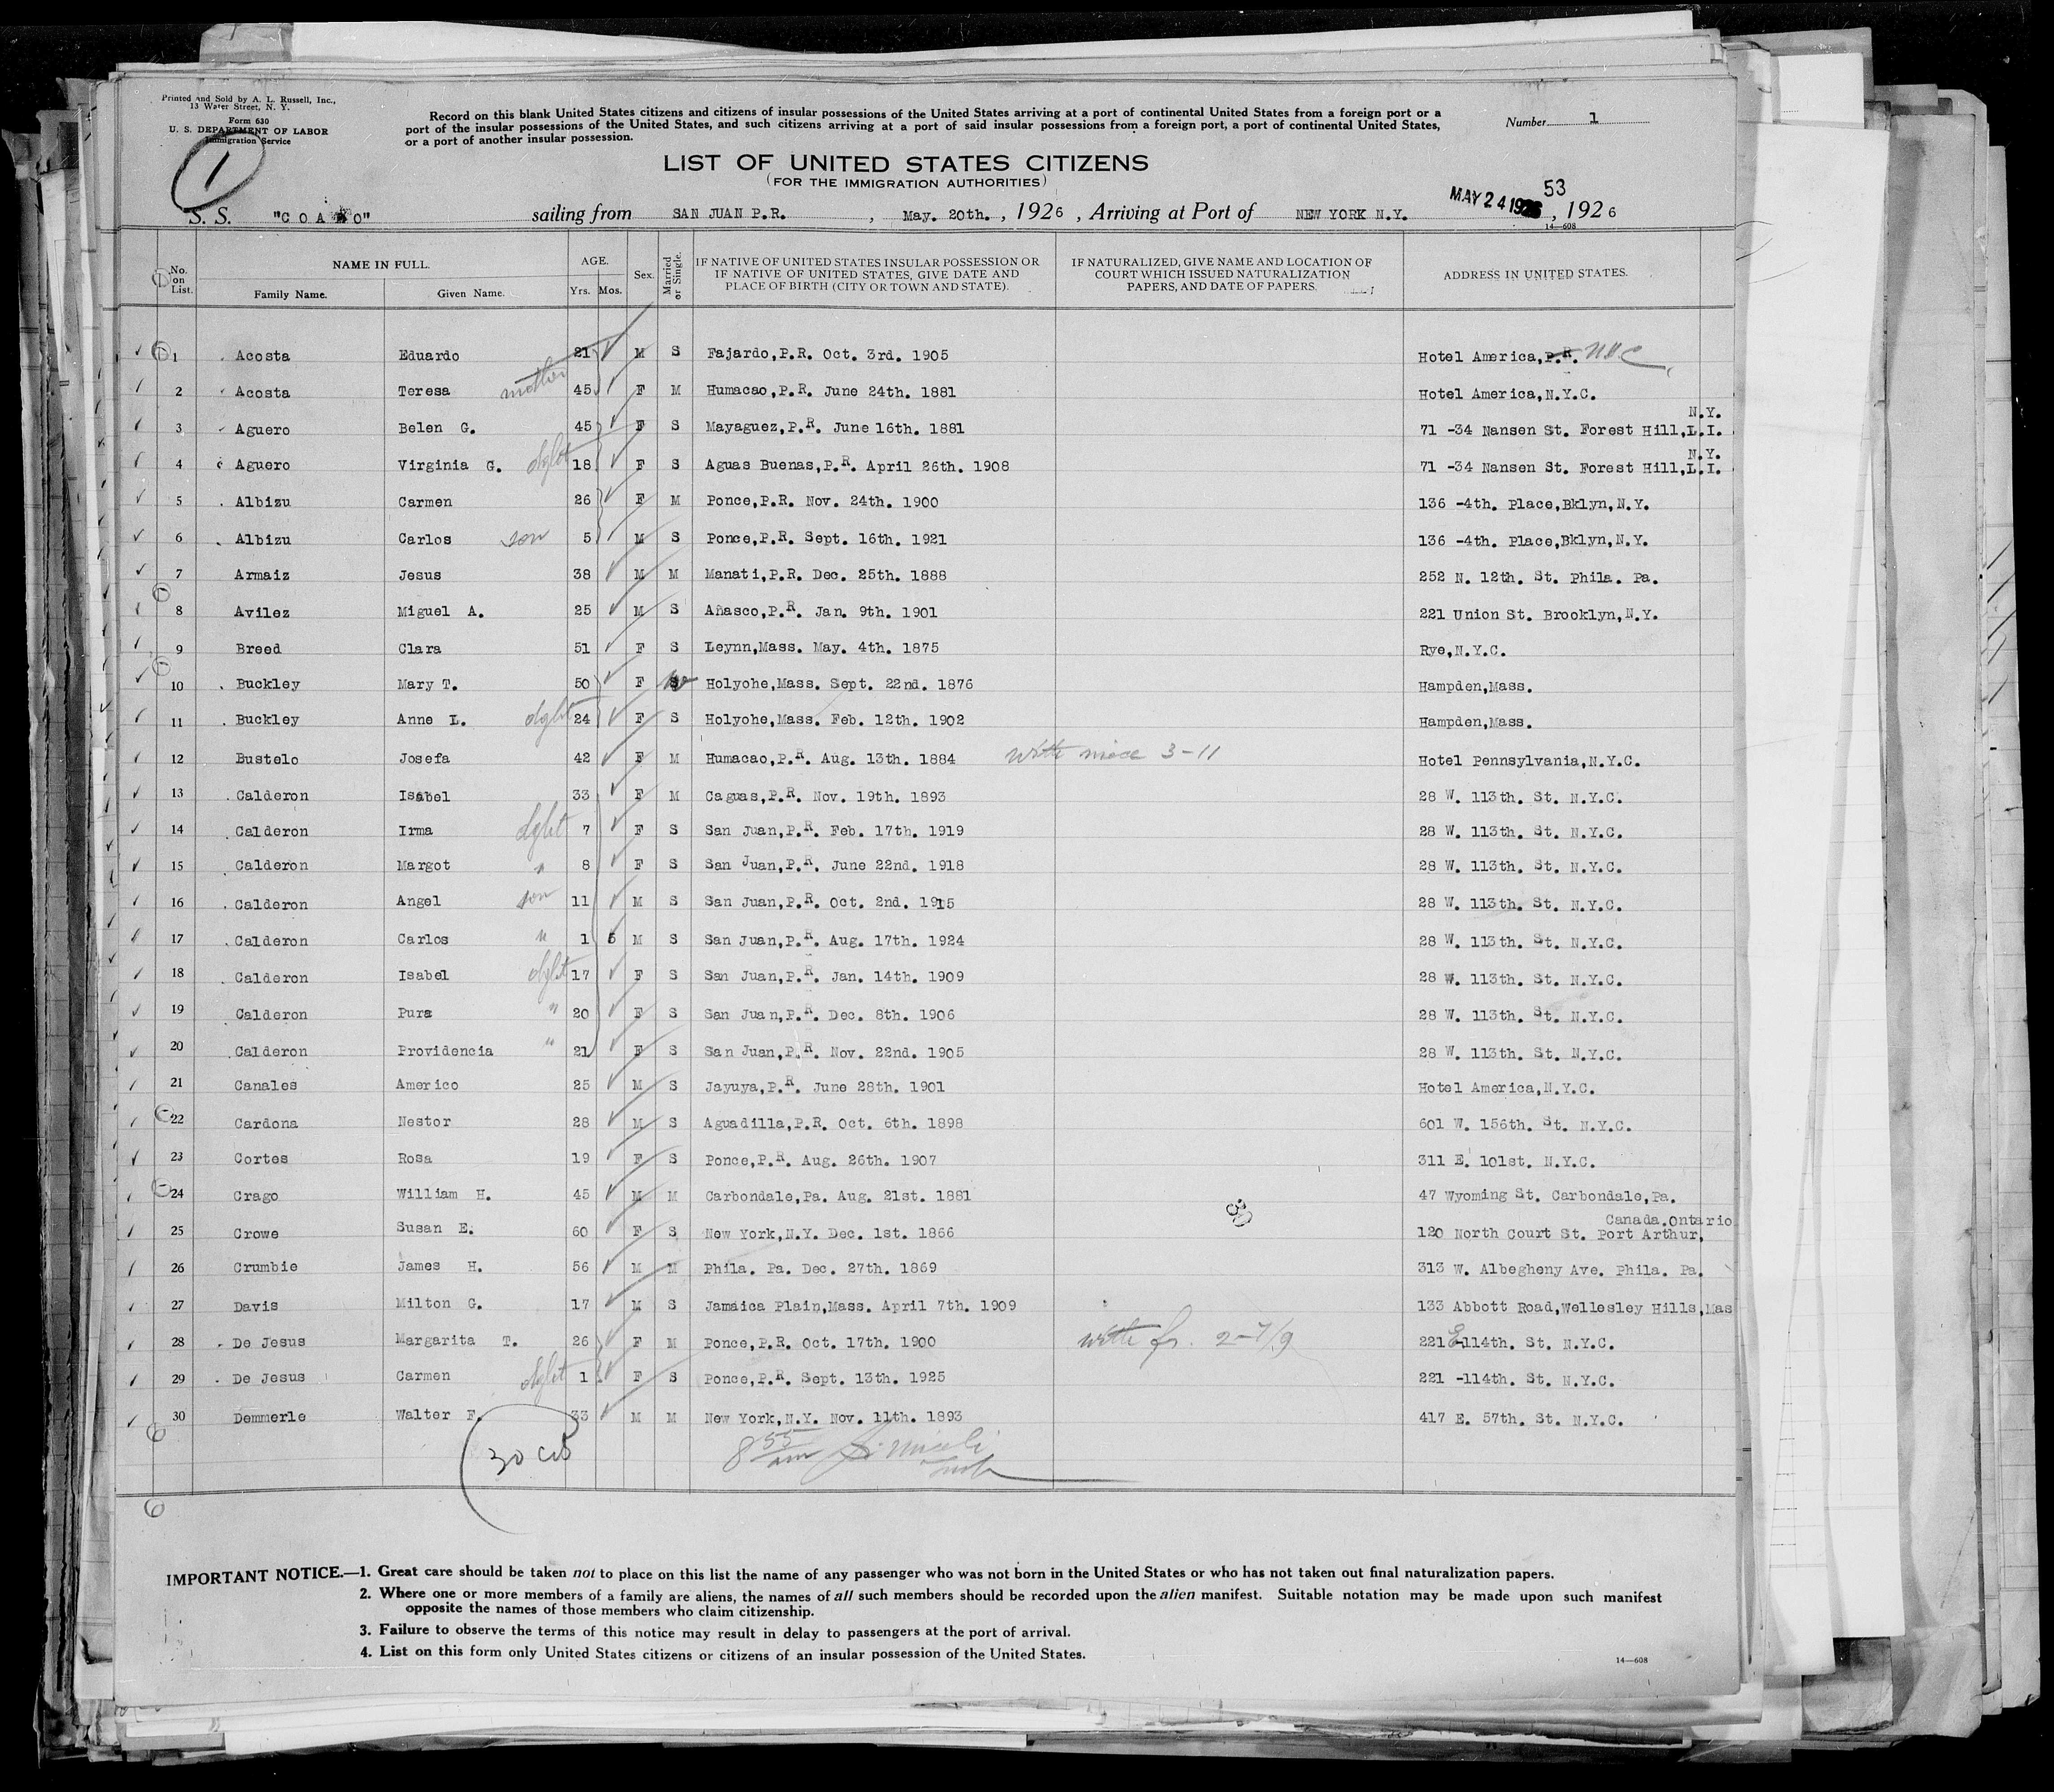 Printed and Sold by A. L. Russell, Inc.,
13 Water Street, N. Y.
Form 630
U. S. DEPARTMENT OF LABOR
Immigration Service
1
Record on this blank United States citizens and citizens of insular possessions of the United States arriving at a port of continental United States from a foreign port or a
port of the insular possessions of the United States, and such citizens arriving at a port of said insular possessions from a foreign port, a port of continental United States,
or a port of another insular possession.
Number 1
LIST OF UNITED STATES CITIZENS
(FOR THE IMMIGRATION AUTHORITIES)
S. S. "COAMO" sailing from SAN JUAN P.R. , May. 20th. , 1926 , Arriving at Port of NEW YORK N.Y. MAY 24 1926 53 , 1926
14—608
No. on List. NAME IN FULL. Family Name. Given Name. AGE. Yrs. Mos. Sex. Married or Single. IF NATIVE OF UNITED STATES INSULAR POSSESSION OR IF NATIVE OF UNITED STATES, GIVE DATE AND PLACE OF BIRTH (CITY OR TOWN AND STATE). IF NATURALIZED, GIVE NAME AND LOCATION OF COURT WHICH ISSUED NATURALIZATION PAPERS, AND DATE OF PAPERS. ADDRESS IN UNITED STATES.
1 Acosta Eduardo 21 M S Fajardo,P.R. Oct. 3rd. 1905 Hotel America,P.R. NYC
2 Acosta Teresa mother 45 F M Humacao,P.R. June 24th. 1881 Hotel America,N.Y.C.
3 Aguero Belen G. 45 F S Mayaguez,P.R. June 16th. 1881 71 -34 Nansen St. Forest Hill,L.I. N.Y.
4 Aguero Virginia G. dght 18 F S Aguas Buenas,P.R. April 26th. 1908 71 -34 Nansen St. Forest Hill,L.I. N.Y.
5 Albizu Carmen 26 F M Ponce,P.R. Nov. 24th. 1900 136 -4th. Place,Bklyn,N.Y.
6 Albizu Carlos son 5 M S Ponce,P.R. Sept. 16th. 1921 136 -4th. Place,Bklyn,N.Y.
7 Armaiz Jesus 38 M M Manati,P.R. Dec. 25th. 1888 252 N. 12th. St. Phila. Pa.
8 Avilez Miguel A. 25 M S Añasco,P.R. Jan. 9th. 1901 221 Union St. Brooklyn,N.Y.
9 Breed Clara 51 F S Leynn,Mass. May. 4th. 1875 Rye,N.Y.C.
10 Buckley Mary T. 50 F W Holyohe,Mass. Sept. 22nd. 1876 Hampden,Mass.
11 Buckley Anne L. dght 24 F S Holyohe,Mass. Feb. 12th. 1902 Hampden,Mass.
12 Bustelo Josefa 42 F M Humacao,P.R. Aug. 13th. 1884 with niece 3-11 Hotel Pennsylvania,N.Y.C.
13 Calderon Isabel 33 F M Caguas,P.R. Nov. 19th. 1893 28 W. 113th. St. N.Y.C.
14 Calderon Irma dght 7 F S San Juan,P.R. Feb. 17th. 1919 28 W. 113th. St. N.Y.C.
15 Calderon Margot " 8 F S San Juan,P.R. June 22nd. 1918 28 W. 113th. St. N.Y.C.
16 Calderon Angel son 11 M S San Juan,P.R. Oct. 2nd. 1915 28 W. 113th. St. N.Y.C.
17 Calderon Carlos " 1 5 M S San Juan,P.R. Aug. 17th. 1924 28 W. 113th. St. N.Y.C.
18 Calderon Isabel dght 17 F S San Juan,P.R. Jan. 14th. 1909 28 W. 113th. St. N.Y.C.
19 Calderon Pura " 20 F S San Juan,P.R. Dec. 8th. 1906 28 W. 113th. St. N.Y.C.
20 Calderon Providencia " 21 F S San Juan,P.R. Nov. 22nd. 1905 28 W. 113th. St. N.Y.C.
21 Canales Americo 25 M S Jayuya,P.R. June 28th. 1901 Hotel America,N.Y.C.
22 Cardona Nestor 28 M S Aguadilla,P.R. Oct. 6th. 1898 601 W. 156th. St. N.Y.C.
23 Cortes Rosa 19 F S Ponce,P.R. Aug. 26th. 1907 311 E. 101st. N.Y.C.
24 Crago William H. 45 M M Carbondale,Pa. Aug. 21st. 1881 47 Wyoming St. Carbondale,Pa.
30
25 Crowe Susan E. 60 F S New York,N.Y. Dec. 1st. 1866 120 North Court St. Port Arthur, Canada.Ontario
26 Crumbie James H. 56 M M Phila. Pa. Dec. 27th. 1869 313 W. Albegheny Ave. Phila. Pa.
27 Davis Milton G. 17 M S Jamaica Plain,Mass. April 7th. 1909 133 Abbott Road,Wellesley Hills,Mas
28 De Jesus Margarita T. 26 F M Ponce,P.R. Oct. 17th. 1900 with fr. 2-7/9 221 E-114th. St. N.Y.C.
29 De Jesus Carmen dght 1 F S Ponce,P.R. Sept. 13th. 1925 221 -114th. St. N.Y.C.
30 Demmerle Walter F. 33 M M New York,N.Y. Nov. 11th. 1893 417 E. 57th. St. N.Y.C.
30 cit
8 55 am
IMPORTANT NOTICE.—1. Great care should be taken not to place on this list the name of any passenger who was not born in the United States or who has not taken out final naturalization papers.
2. Where one or more members of a family are aliens, the names of all such members should be recorded upon the alien manifest. Suitable notation may be made upon such manifest
opposite the names of those members who claim citizenship.
3. Failure to observe the terms of this notice may result in delay to passengers at the port of arrival.
4. List on this form only United States citizens or citizens of an insular possession of the United States.
14—608